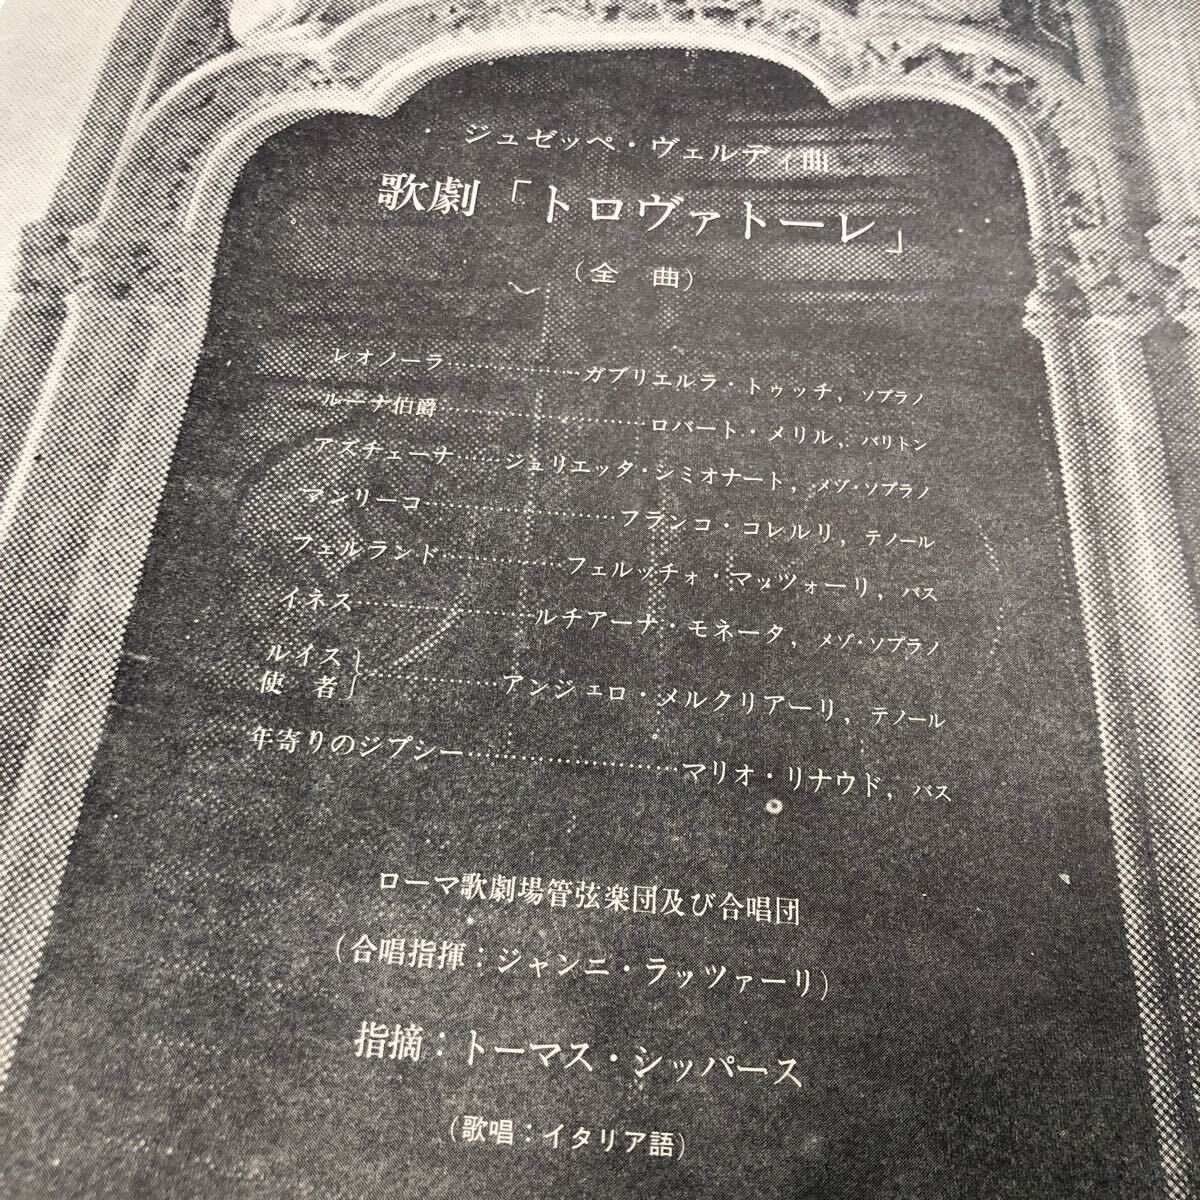 ジュゼッペ・ヴェルディ曲
歌劇「トロヴァトーレ」
(全 曲)
レオノーラ……………ガブリエルラ・トゥッチ, ソプラノ
ルーナ伯爵……………………ロバート・メリル, バリトン
アズチェーナ……ジュリエッタ・シミオナート, メゾ・ソプラノ
マンリーコ……………………フランコ・コレルリ, テノール
フェルランド……………フェルッチォ・マッツォーリ, バス
イネス…………………ルチアーナ・モネータ, メゾ・ソプラノ
ルイス
使 者}……………アンジェロ・メルクリアーリ, テノール
年寄りのジプシー……………………マリオ・リナウド, バス
ローマ歌劇場管弦楽団及び合唱団
(合唱指揮:ジャンニ・ラッツァーリ)
指摘:トーマス・シッパース
(歌唱:イタリア語)